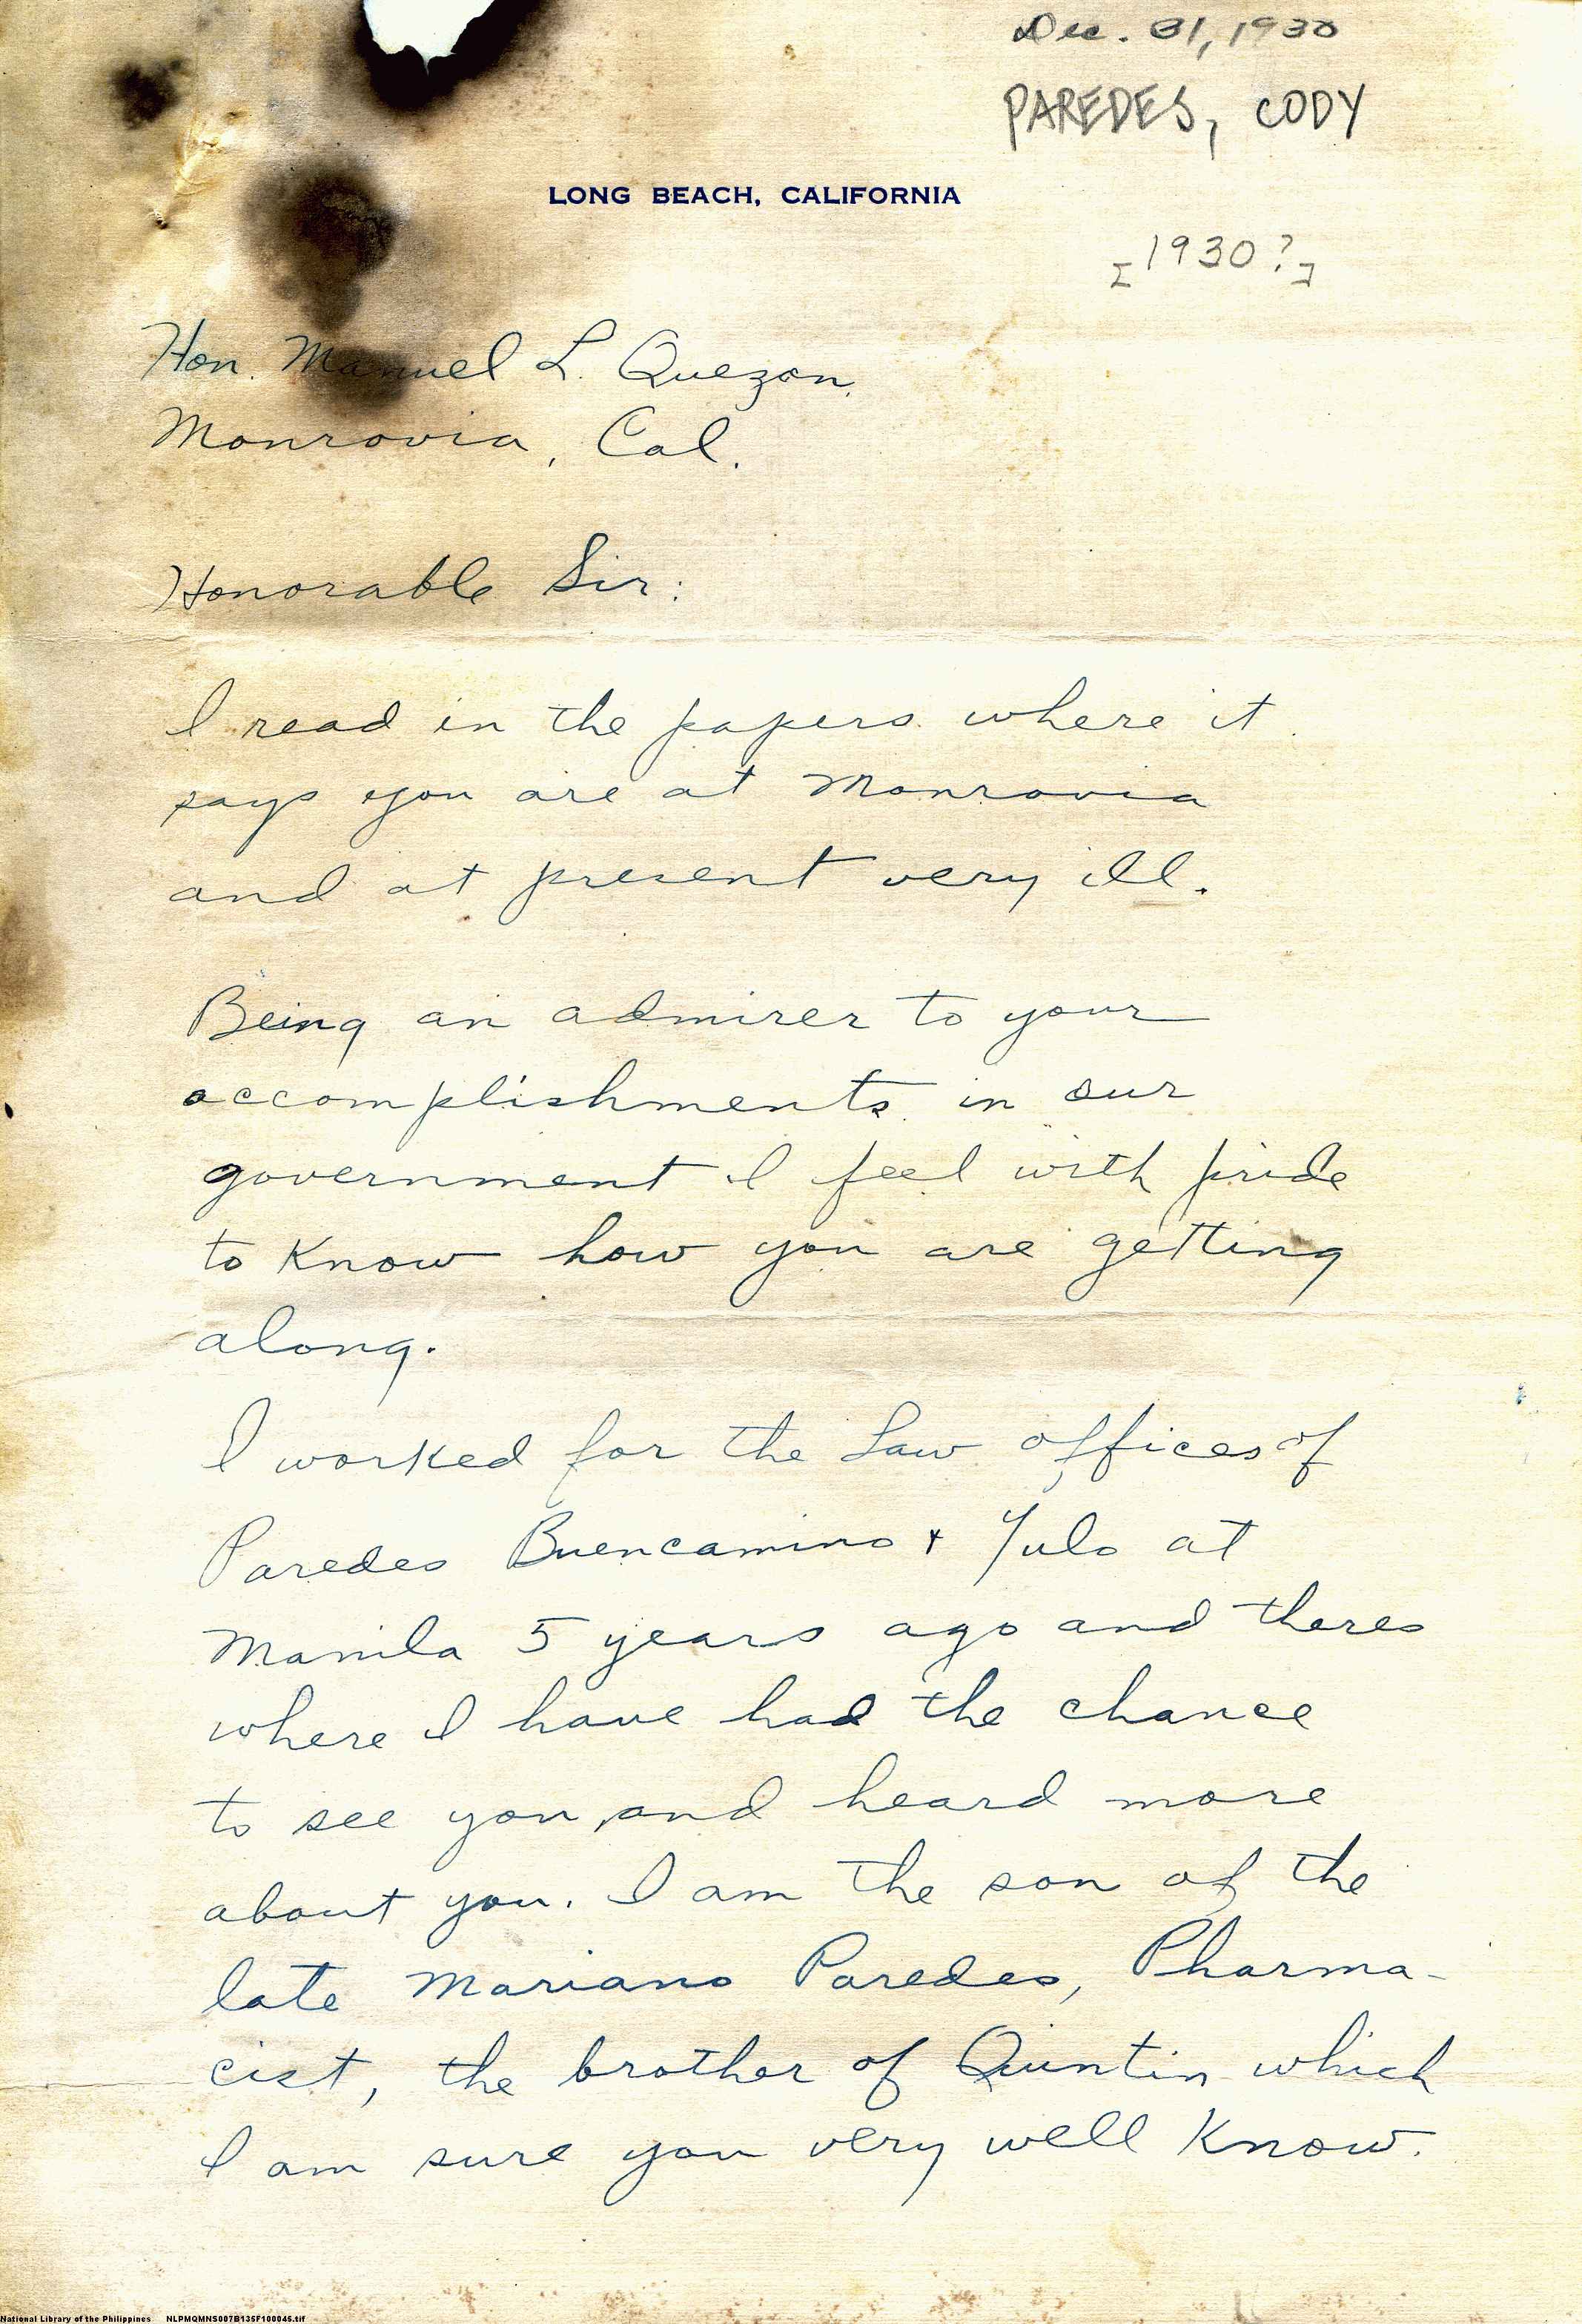 Dec. 31, 1930
PAREDES, CODY
LONG BEACH, CALIFORNIA
[1930?]
Hon. Manuel L. Quezon,
Monrovia, Cal.
Honorable Sir:
I read in the papers where it
says you are at Monrovia
and at present very ill.
Being an admirer to your
accomplishments in our
government I feel with pride
to know how you are getting
along.
I worked for the Law offices of
Paredes Buencamino & Yulo at
Manila 5 years ago and theres
where I have had the chance
to see you, and heard more
about you. I am the son of the
late Mariano Paredes, Pharma-
cist, the brother of Quintin which
I am sure you very well know.
National Library of the Philippines NLPMQMNS007B135F100045.tif